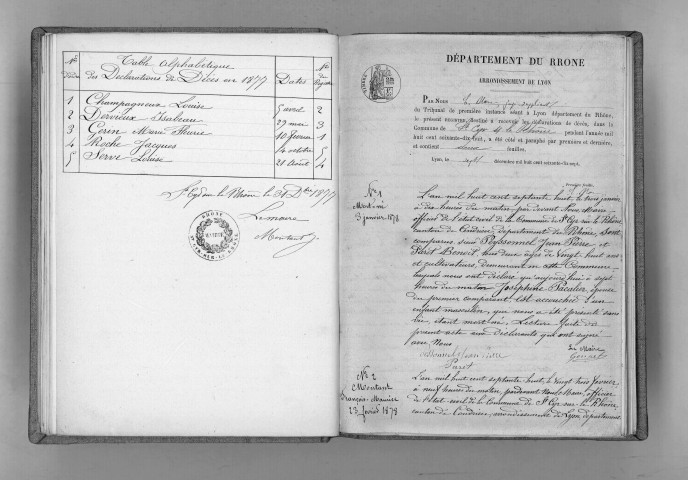 Nos d'Ordre
Table Alphabétique
des Déclarations de Décès en 1877
Dates
Nos du Registre
1 Champagneux Louise 5 avril 2
2 Dervieux Isabeau 27 mai 3
3 Gérin Marie Fleurie 10 février 1
4 Roche Jacques 4 octobre 5
5 Serve Louise 21 Août 4
St Cyr sur le Rhône le 31 Dbre 1877
Le maire
Montant
DÉPARTEMENT DU RHONE
ARRONDISSEMENT DE LYON
PAR NOUS
du Tribunal de première instance séant à Lyon département du Rhône,
le présent encanu destiné à recevoir les déclarations de décès, dans la
Commune de St Cyr s/ le Rhône pendant l'année mil
huit cent soixante-dix-huit, a été coté et paraphé par première et dernière,
et contient feuilles.
Lyon, le sept Décembre mil huit cent soixante-dix-sept.
Première feuille
No 1
Mort-né
3 janvier 1878
L'an mil huit cent septante huit, le trois janvier
à dix heures du matin, par devant Nous Maire
officier de l'état civil de la Commune de St Cyr sur le Rhône
canton de Condrieu, département du Rhône, sont
comparus sieurs Peyssonnel Jean Pierre et
Paret Benoit, tous deux âgés de vingt huit ans
et cultivateurs, demeurant en cette Commune
lesquels nous ont déclaré qu'aujourd'hui à sept
heures du matin Joséphine Pacalier, épouse
du premier comparant, est accouchée d'un
enfant masculin, qui nous a été présenté sans
vie, étant mort né. Lecture faite du
présent acte aux Déclarants qui ont signé
avec Nous
Le Maire
Paret
No 2
Montant
François-Maurice
23 février 1878
L'an mil huit cent septante huit, le vingt trois février,
à neuf heures du matin, pardevant Nous Maire, officier
de l'état civil de la Commune de St Cyr sur le Rhône
canton de Condrieu, arrondissement de Lyon, département